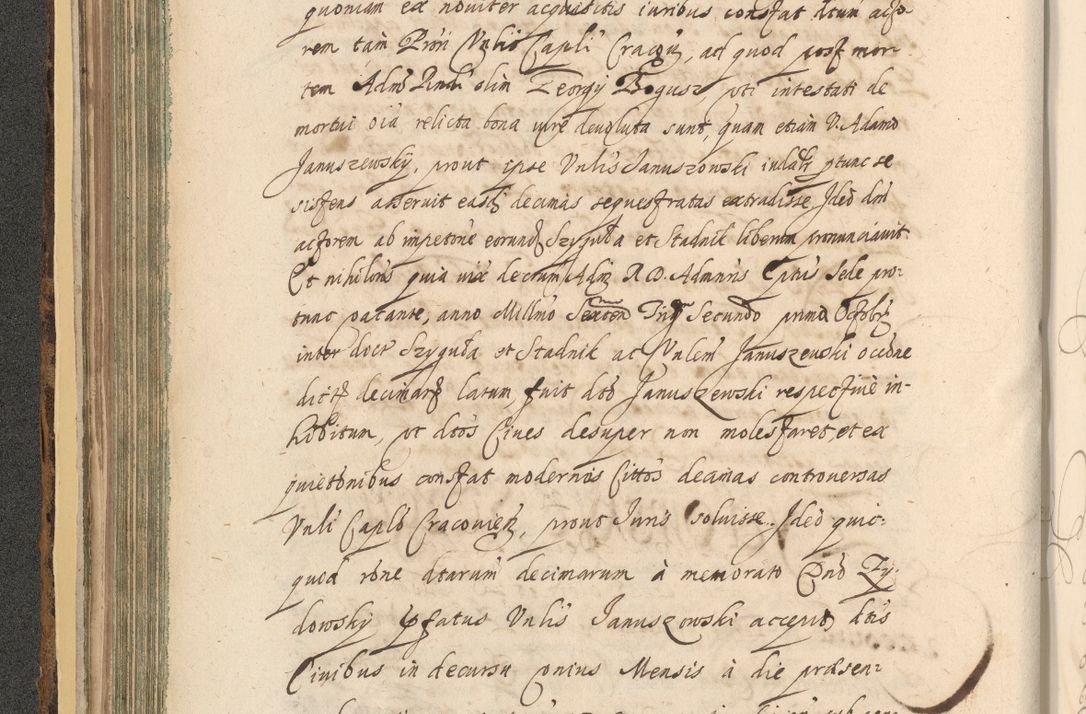 quoniam ex noviter acquisitis iuribus constat dtum acto-
rem tam Prori Vnlis Capli Cracou, ad quod post mor-
tem Admd Rndi olim Georgij Bogusz, uti intestati de
mortui oia relicta bona iure devoluta sunt, quam etiam V. Adamo
Januszewskij, prout ipse Vnlis Januszowski iudicialr ptunc se
sistens asseruit easd decimas sequestratas extradisse. Ideo dnm
actorem ab impetone eorund Szyguła et Stadnik liberum pronunciavit.
Et nihilois quia vix decretum Adm R. D. Admnris Eptus Sede pro-
tunc vacante, anno Millmo Sexcen Trig Secundo prima Octobr
inter doct Szyguła et Stadnik ac Vnlem Januszewski occone
dictar decimar latum, fuit dto Januszewski respective in-
hibitum, vt dtos Ciues desuper non molestaret, et ex
quietonibus constat modernos Cittos decimas controversas
Vnli Caplo Cracouien, prout Iuris soluisse. Ideo quic-
quod rone dtarum decimarum à memorato Gnd Zy-
dowsky pfatus Vnlis Januszowski accepit, dtis
Ciuibus in decursu vnius Mensis à die præsen-